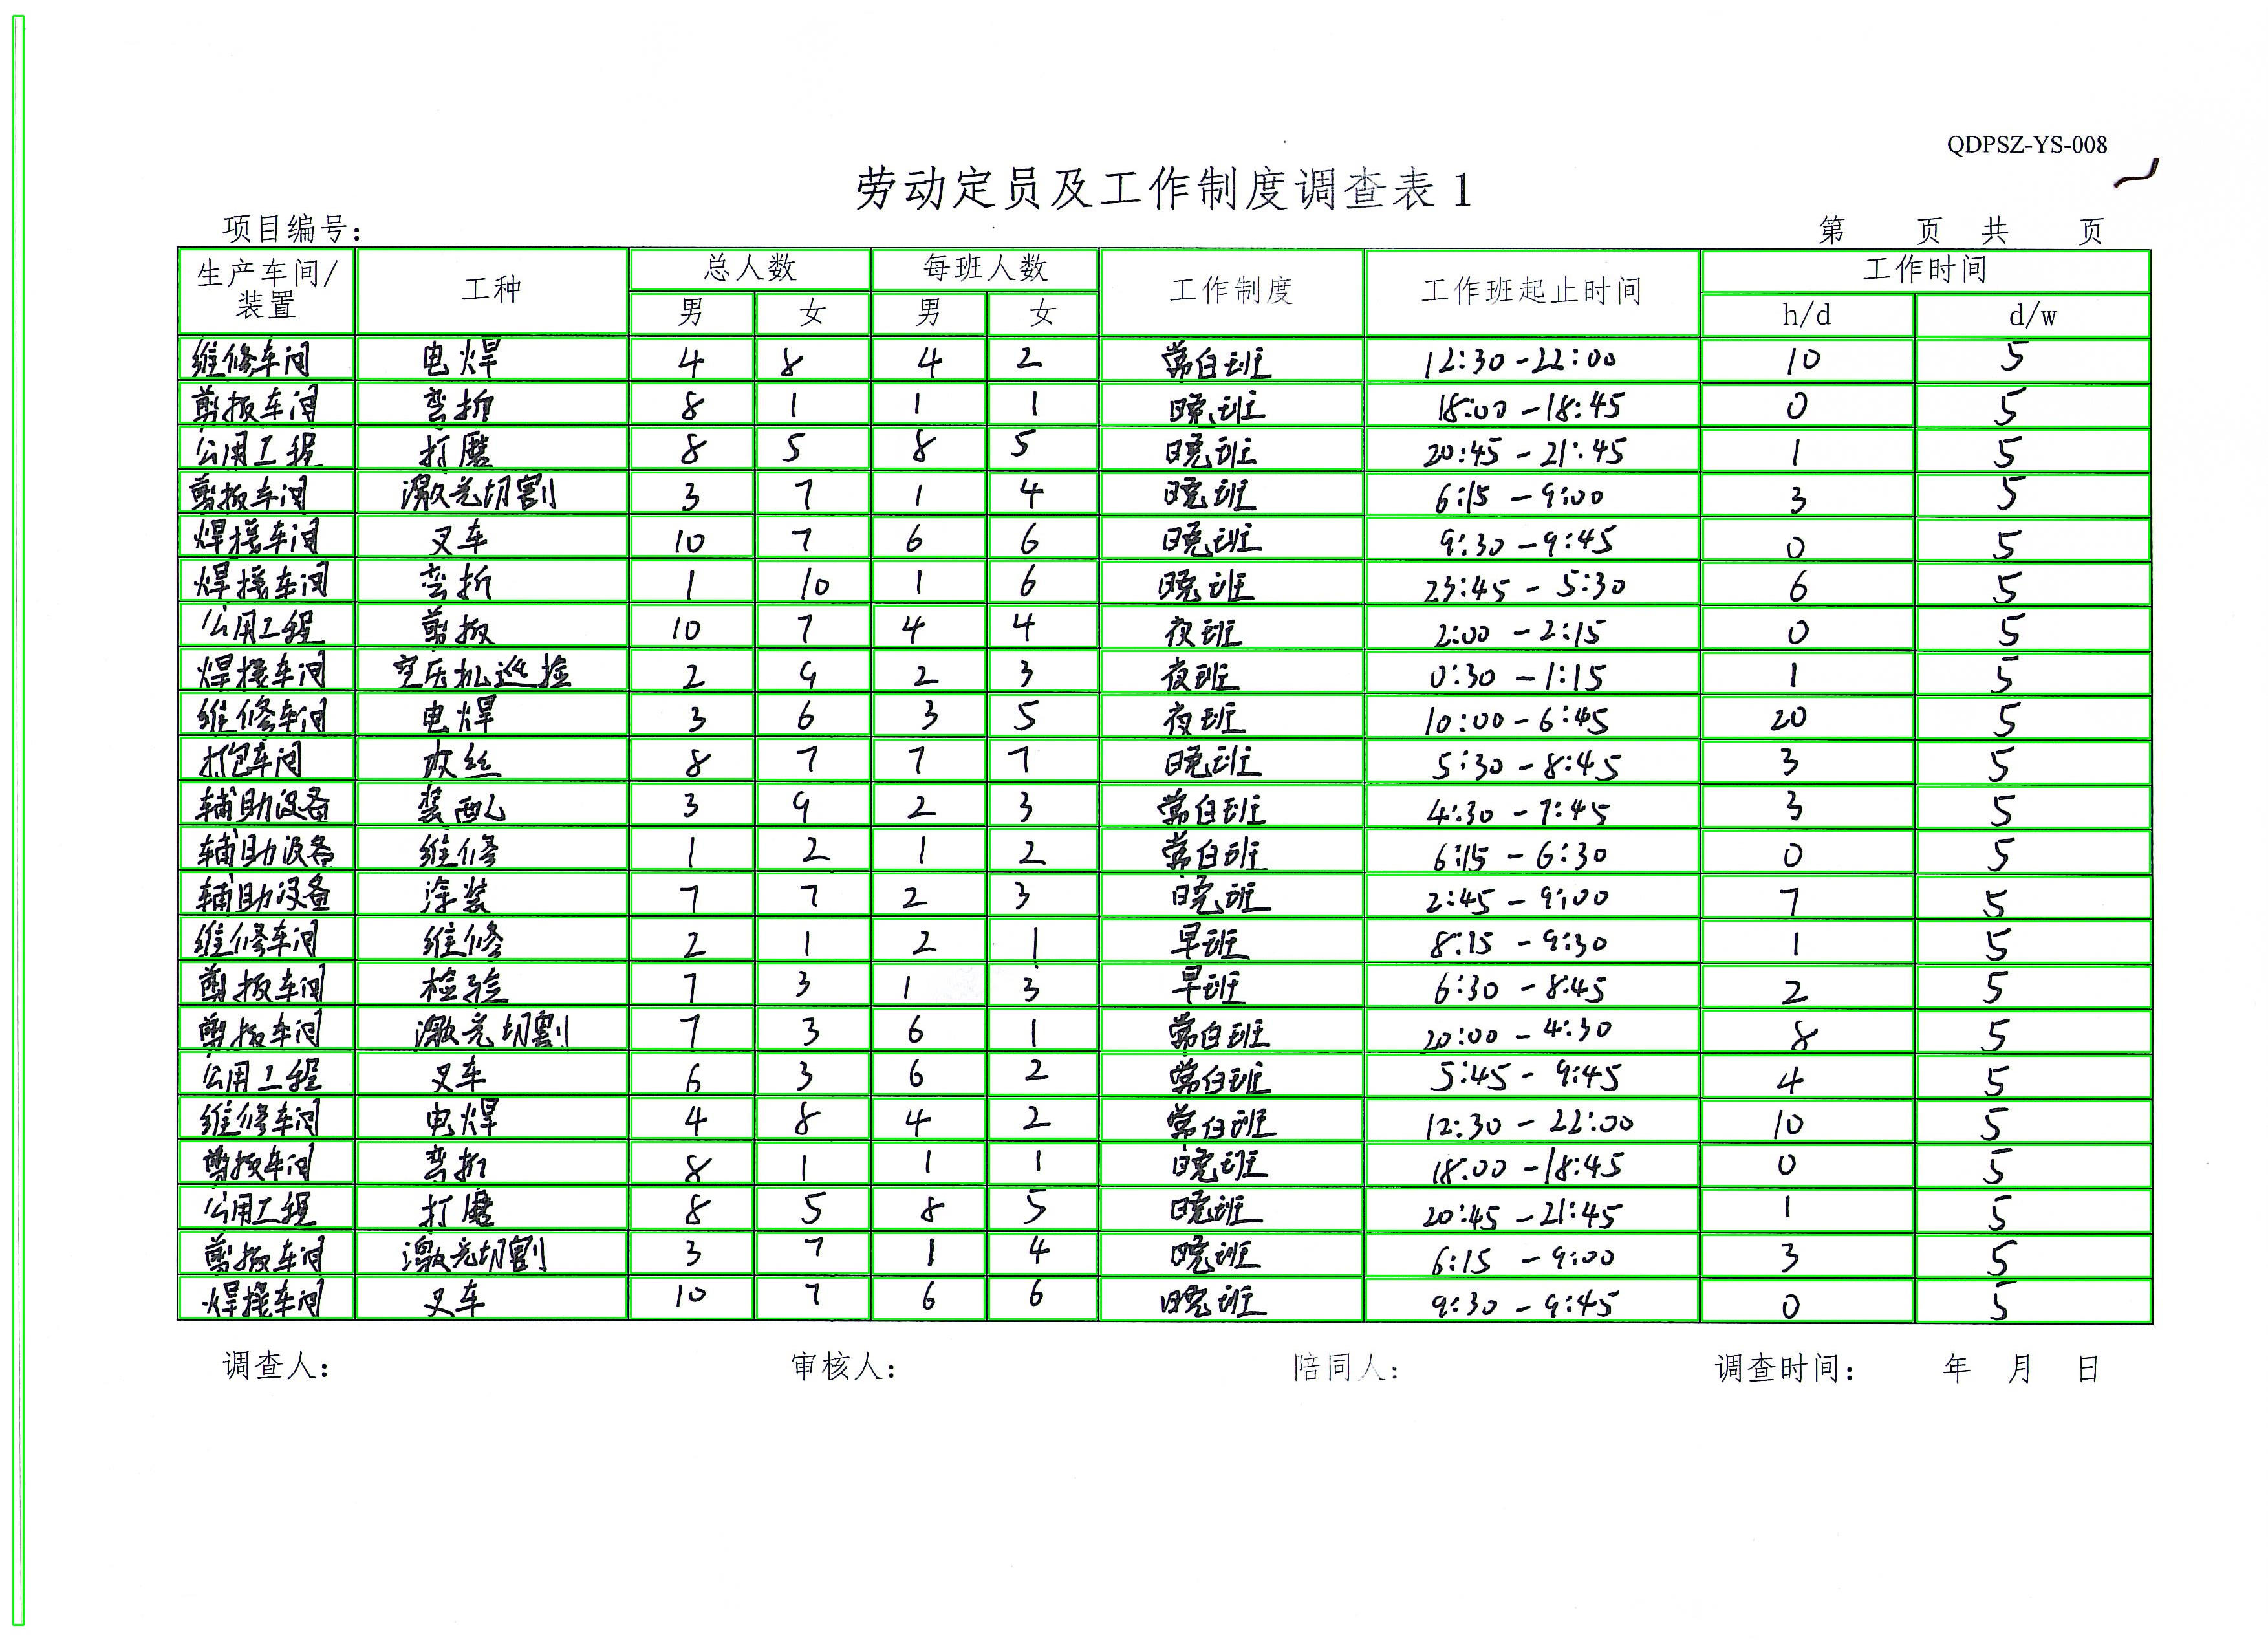 QDPSZ-YS-008
劳动定员及工作制度调查表1
项目编号： 第 页 共 页
生产车间/装置 工种 总人数 每班人数 工作制度 工作班起止时间 工作时间
男 女 男 女 h/d d/w
维修车间 电焊 4 8 4 2 常白班 12:30-22:00 10 5
剪板车间 弯折 8 1 1 1 晚班 18:00-18:45 0 5
公用工程 打磨 8 5 8 5 晚班 20:45-21:45 1 5
剪板车间 激光切割 3 7 1 4 晚班 6:15-9:00 3 5
焊接车间 叉车 10 7 6 6 晚班 9:30-9:45 0 5
焊接车间 弯折 1 10 1 6 晚班 23:45-5:30 6 5
公用工程 剪板 10 7 4 4 夜班 2:00-2:15 0 5
焊接车间 空压机巡检 2 9 2 3 夜班 0:30-1:15 1 5
维修车间 电焊 3 6 3 5 夜班 10:00-6:45 20 5
打包车间 放丝 8 7 7 7 晚班 5:30-8:45 3 5
辅助设备 装配 3 9 2 3 常白班 4:30-7:45 3 5
辅助设备 维修 1 2 1 2 常白班 6:15-6:30 0 5
辅助设备 涂装 7 7 2 3 晚班 2:45-9:00 7 5
维修车间 维修 2 1 2 1 早班 8:15-9:30 1 5
剪板车间 检验 7 3 1 3 早班 6:30-8:45 2 5
剪板车间 激光切割 7 3 6 1 常白班 20:00-4:30 8 5
公用工程 叉车 6 3 6 2 常白班 5:45-9:45 4 5
维修车间 电焊 4 8 4 2 常白班 12:30-22:00 10 5
剪板车间 弯折 8 1 1 1 晚班 18:00-18:45 0 5
公用工程 打磨 8 5 8 5 晚班 20:45-21:45 1 5
剪板车间 激光切割 3 7 1 4 晚班 6:15-9:00 3 5
焊接车间 叉车 10 7 6 6 晚班 9:30-9:45 0 5
调查人： 审核人： 陪同人： 调查时间： 年 月 日